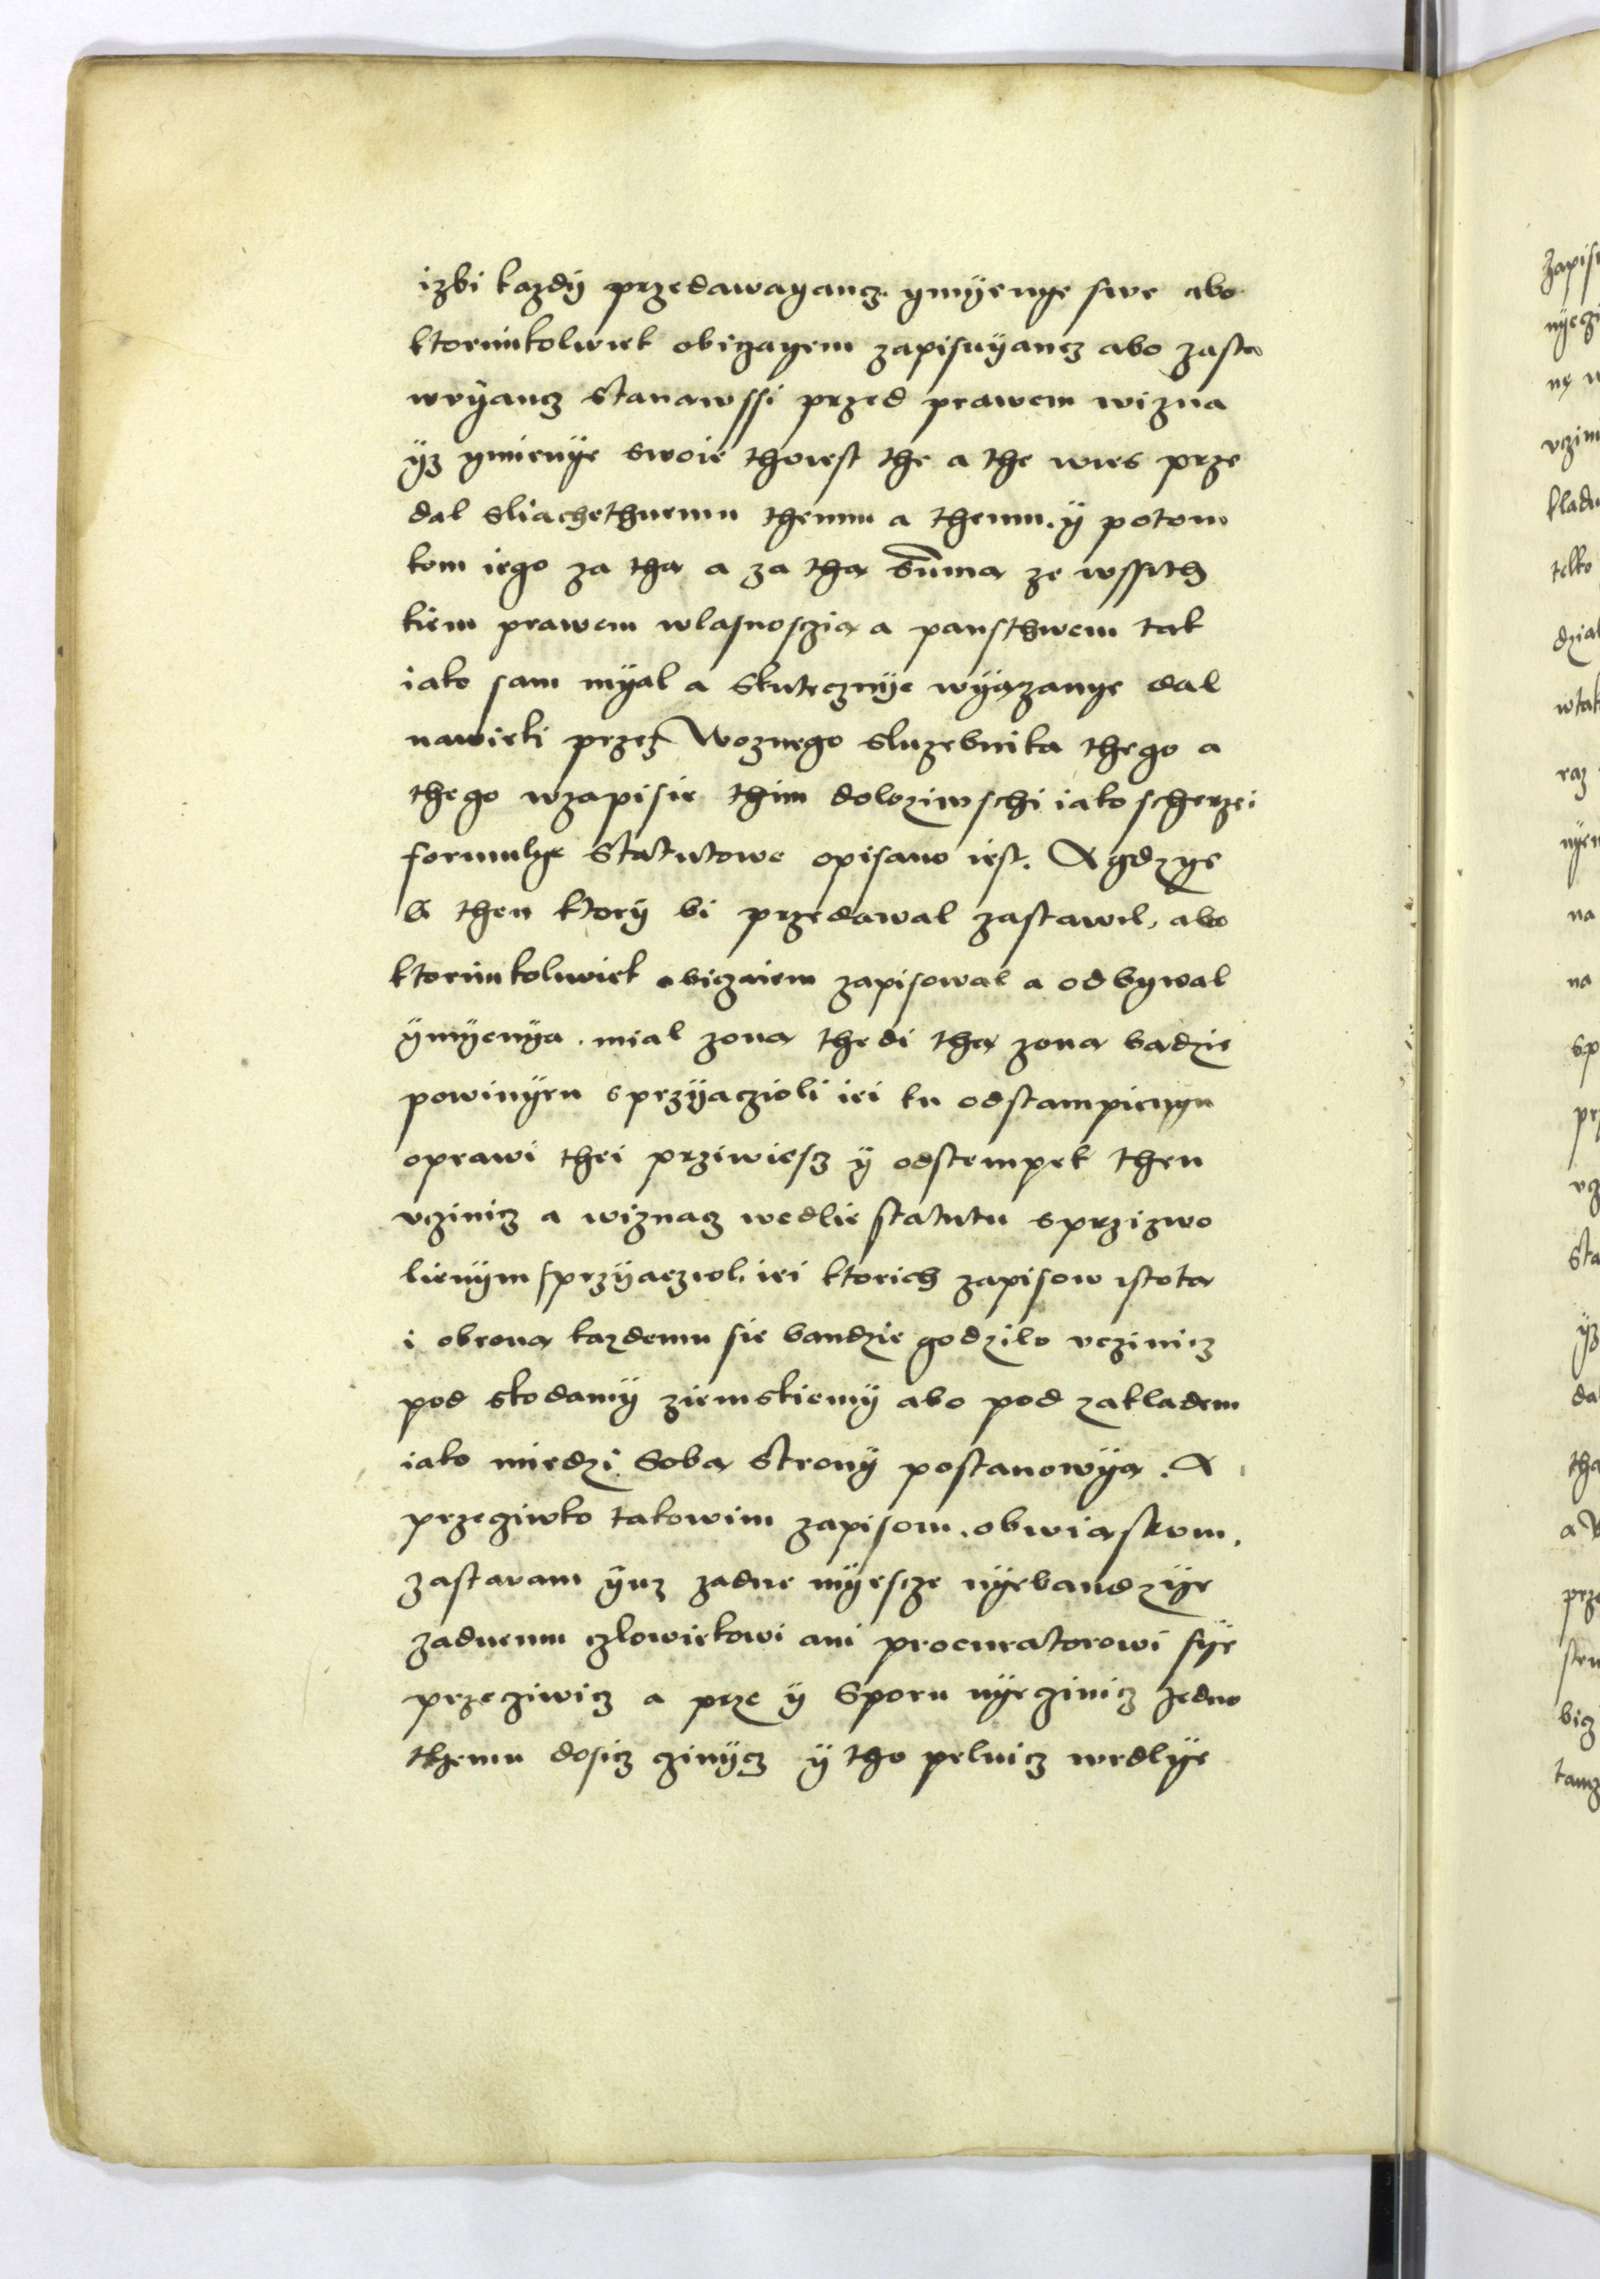 izbi kazdÿ przedawayancz ymÿenye swe abo
ktorimkolwiek obiczayem zapisuÿancz abo zasta
wyÿancz stanawssi przed prawem wizna
ÿz ymienÿe swoie thoiest the a the wies prze
dal sliachethnemu themu a themu. ÿ potom
kom iego za tha a za tha suma ze wssitch
kiem prawem wlasnosczia a pansthwem tak
iako sam mÿal a skutecznÿe wÿazanye dal
nawieki przez Woznego sluzebnika thego a
thego wzapisie thim doloziwschi iako scherzei
formulye Statutowe opisano iest. A gdzye
bi then ktorÿ bi przedawal zastawil, abo
ktorimkolwiek obiczaiem zapisowal a odbywal
ÿmÿenÿa. mial zona thedi tha zona badzie
powinÿen s przÿaczioli iei ku odstampienyu
oprawi thei prziwiescz ÿ odstempek then
vczinicz a wiznacz wedlie statutu s przizwo
lienÿm przÿacziol, iei ktorich zapisow istota
i obrona kazdemu sie bandzie godzilo vczinicz
pod skodamÿ ziemskiemÿ abo pod zakladem
iako miedzi soba stronÿ postanowÿa. A
przeciwko takowim zapisom, obwiastom,
zastavam ÿuz zadne mÿescze nÿebandzÿe
zadnemu czlowiekowi ani procuratorowi sÿe
przeciwicz a prze ÿ sporu nÿeczinicz Jedno
themu dosicz czinÿcz ÿ tho pelnicz wedlÿe
zapis
nÿeczi
vczin
klada
telko
dzial
wtak
raz
nÿem
na
na
sp
prz
vcz
sta
ÿz
da
tha
prze
bicz
tamz